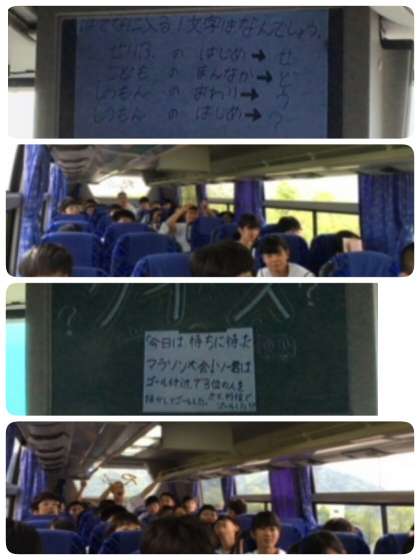 はてなに入る1文字はなんでしょう。
せりふ の はじめ➡ せ
こども の まんなか➡ ど
の おわり➡
しつもん の はじめ➡ ?
クイズ
? ?
「今日は、待ちに待った
マラソン大会!ソー君は
ゴール付近で3位の人を
抜かしてゴールした。さて、何位で
ゴールした